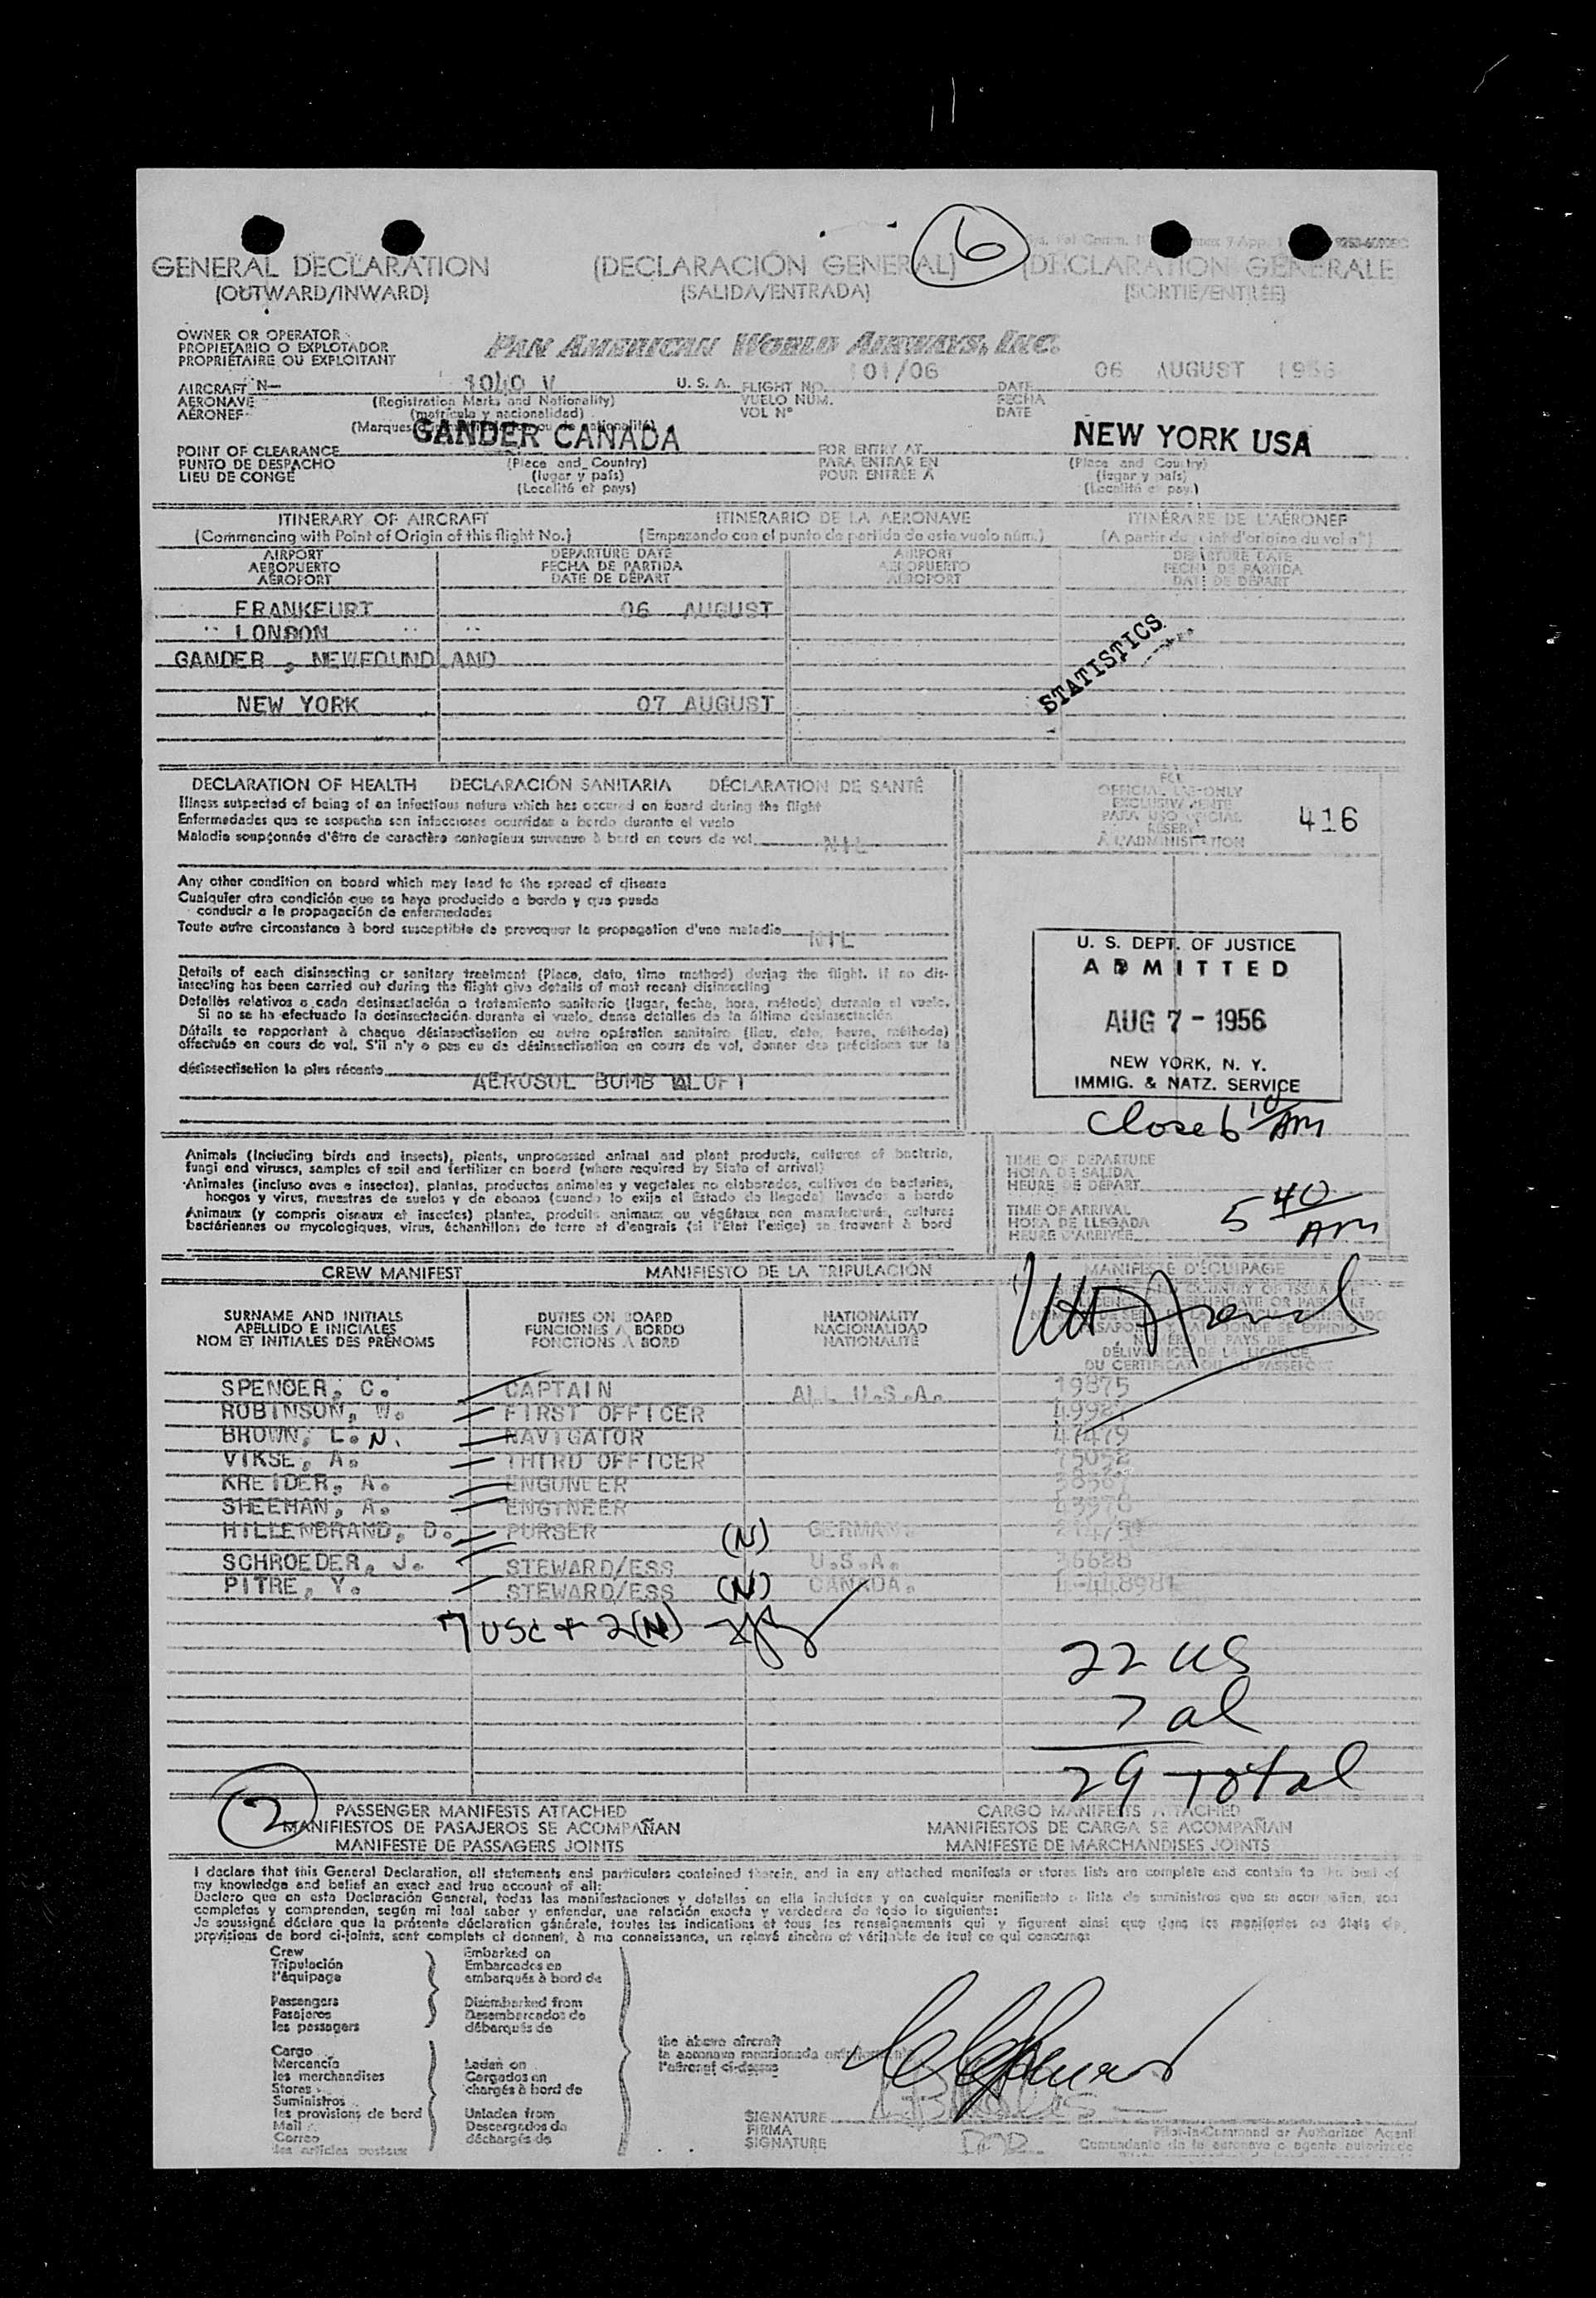 6
9253-60908C
GENERAL DECLARATION (DECLARACIÓN GENERAL) (DECLARATION GENERALE
(OUTWARD/INWARD) (SALIDA/ENTRADA) (SORTIE/ENTREE)
OWNER OR OPERATOR
PROPIETARIO O EXPLOTADOR
PROPRIÉTAIRE OU EXPLOITANT
PAN AMERICAN WORLD AIRWAYS, INC.
AIRCRAFT N- 1040 V U. S. A. FLIGHT NO. 101/06 DATE 06 AUGUST 1956
AERONAVE (Registration Marks and Nationality) VUELO NUM. FECHA
AÉRONEF (matricula y nacionalidad) VOL N° DATE
(Marques ou de nationalité)
POINT OF CLEARANCE GANDER CANADA FOR ENTRY AT NEW YORK USA
PUNTO DE DESPACHO (Place and Country) PARA ENTRAR EN (Place and Country)
LIEU DE CONGÉ (lugar y país) POUR ENTRÉE A (lugar y país)
(Localité et pays) (Localité et pays)
ITINERARY OF AIRCRAFT ITINERARIO DE LA AERONAVE ITINÉRAIRE DE L'AÉRONEF
(Commencing with Point of Origin of this flight No.) (Empezando con el punto de partida de este vuelo núm.) (A partir du point d'origine du vol n°)
AIRPORT DEPARTURE DATE AIRPORT DEPARTURE DATE
AEROPUERTO FECHA DE PARTIDA AEROPUERTO FECHA DE PARTIDA
AÉROPORT DATE DE DÉPART AÉROPORT DATE DE DÉPART
FRANKFURT 06 AUGUST
" LONDON " "
GANDER , NEWFOUNDLAND
STATISTICS
NEW YORK 07 AUGUST
DECLARATION OF HEALTH DECLARACIÓN SANITARIA DÉCLARATION DE SANTÉ
Illness suspected of being of an infectious nature which has occured on board during the flight
Enfermedades que se sospecha son infecciosas ocurridas a bordo durante el vuelo
Maladie soupçonnée d'être de caractère contagieux survenue à bord en cours de vol NIL
FOR
OFFICIAL USE ONLY
EXCLUSIVAMENTE
PARA USO OFICIAL
RESERVÉ
A L'ADMINISTRATION
416
Any other condition on board which may lead to the spread of disease
Cualquier otra condición que se haya producido a bordo y que pueda
conducir a la propagación de enfermedades
Toute autre circonstance à bord susceptible de provoquer la propagation d'une maladie NIL
Details of each disinsecting or sanitary treatment (Place, date, time method) during the flight. If no dis-
insecting has been carried out during the flight give details of most recent disinsecting
Detalles relativos a cada desinsectación o tratamiento sanitario (lugar, fecha, hora, método) durante el vuelo.
Si no se ha efectuado la desinsectación durante el vuelo, dense detalles de la última desinsectación
Détails se rapportant à chaque désinsectisation ou autre opération sanitaire (lieu, date, heure, méthode)
effectuée en cours de vol. S'il n'y a pas eu de désinsectisation en cours de vol, donner des précisions sur la
désinsectisation la plus récente AEROSOL BOMB ALOFT
U. S. DEPT. OF JUSTICE
ADMITTED
AUG 7 - 1956
NEW YORK, N. Y.
IMMIG. & NATZ. SERVICE
Close 6 10 AM
Animals (including birds and insects), plants, unprocessed animal and plant products, cultures of bacteria,
fungi and viruses, samples of soil and fertilizer on board (where required by State of arrival)
Animales (incluso aves e insectos), plantas, productos animales y vegetales no elaborados, cultivos de bacterias,
hongos y virus, muestras de suelos y de abonos (cuando lo exija el Estado de llegada) llevados a bordo
Animaux (y compris oiseaux et insectes) plantes, produits animaux ou végétaux non manufacturés, cultures
bactériennes ou mycologiques, virus, échantillons de terre et d'engrais (si l'Etat l'exige) se trouvant à bord
TIME OF DEPARTURE
HORA DE SALIDA
HEURE DE DÉPART
TIME OF ARRIVAL
HORA DE LLEGADA
HEURE D'ARRIVÉE
5 40 AM
CREW MANIFEST MANIFIESTO DE LA TRIPULACIÓN MANIFESTE D'ÉQUIPAGE
SURNAME AND INITIALS DUTIES ON BOARD NATIONALITY
APELLIDO E INICIALES FUNCIONES A BORDO NACIONALIDAD
NOM ET INITIALES DES PRÉNOMS FONCTIONS A BORD NATIONALITÉ
DÉLIVRANCE DE LA LICENCE,
DU CERTIFICAT OU DU PASSEPORT
SPENCER, C. CAPTAIN ALL U.S.A. 19875
ROBINSON, W. FIRST OFFICER
BROWN, L.N. NAVIGATOR 47479
VIKSE, A. THIRD OFFICER 75052
KREIDER, A. ENGUNEER
SHEEHAN, A. ENGINEER
HILLENBRAND, D. PURSER (N) GERMANY.
SCHROEDER, J. STEWARD/ESS U.S.A. 36628
PITRE, Y. STEWARD/ESS (N) CANADA.
7 USC + 2(N)
22 US
7 al
29 Total
2
PASSENGER MANIFESTS ATTACHED CARGO MANIFESTS ATTACHED
MANIFIESTOS DE PASAJEROS SE ACOMPAÑAN MANIFIESTOS DE CARGA SE ACOMPAÑAN
MANIFESTE DE PASSAGERS JOINTS MANIFESTE DE MARCHANDISES JOINTS
I declare that this General Declaration, all statements and particulars contained therein, and in any attached manifests or stores lists are complete and contain to the best of
my knowledge and belief an exact and true account of all:
Declaro que en esta Declaración General, todas las manifestaciones y detalles en ella incluídos y en cualquier manifiesto o lista de suministros que se acompañen, son
completas y comprenden, según mi leal saber y entender, una relación exacta y verdadera de todo lo siguiente:
Je soussigné déclare que la présente déclaration générale, toutes les indications et tous les renseignements qui y figurent ainsi que dans les manifestes ou états de
provisions de bord ci-joints, sont complets et donnent, à ma connaissance, un relevé sincère et véritable de tout ce qui concerne:
Crew Embarked on
Tripulación Embarcados en
l'équipage embarqués à bord de
Passengers Disembarked from
Pasajeros Desembarcados de
les passagers débarqués de
the above aircraft
la aeronave mencionada anteriormente
l'aéronef ci-dessus
Cargo
Mercancía Laden on
les marchandises Cargados en
Stores chargés à bord de
Suministros
les provisions de bord Unladen from
Mail Descargados de
Correo déchargés de
des articles postaux
SIGNATURE
FIRMA Pilot-in-Command or Authorized Agent
SIGNATURE Comandante de la aeronave o agente autorizado